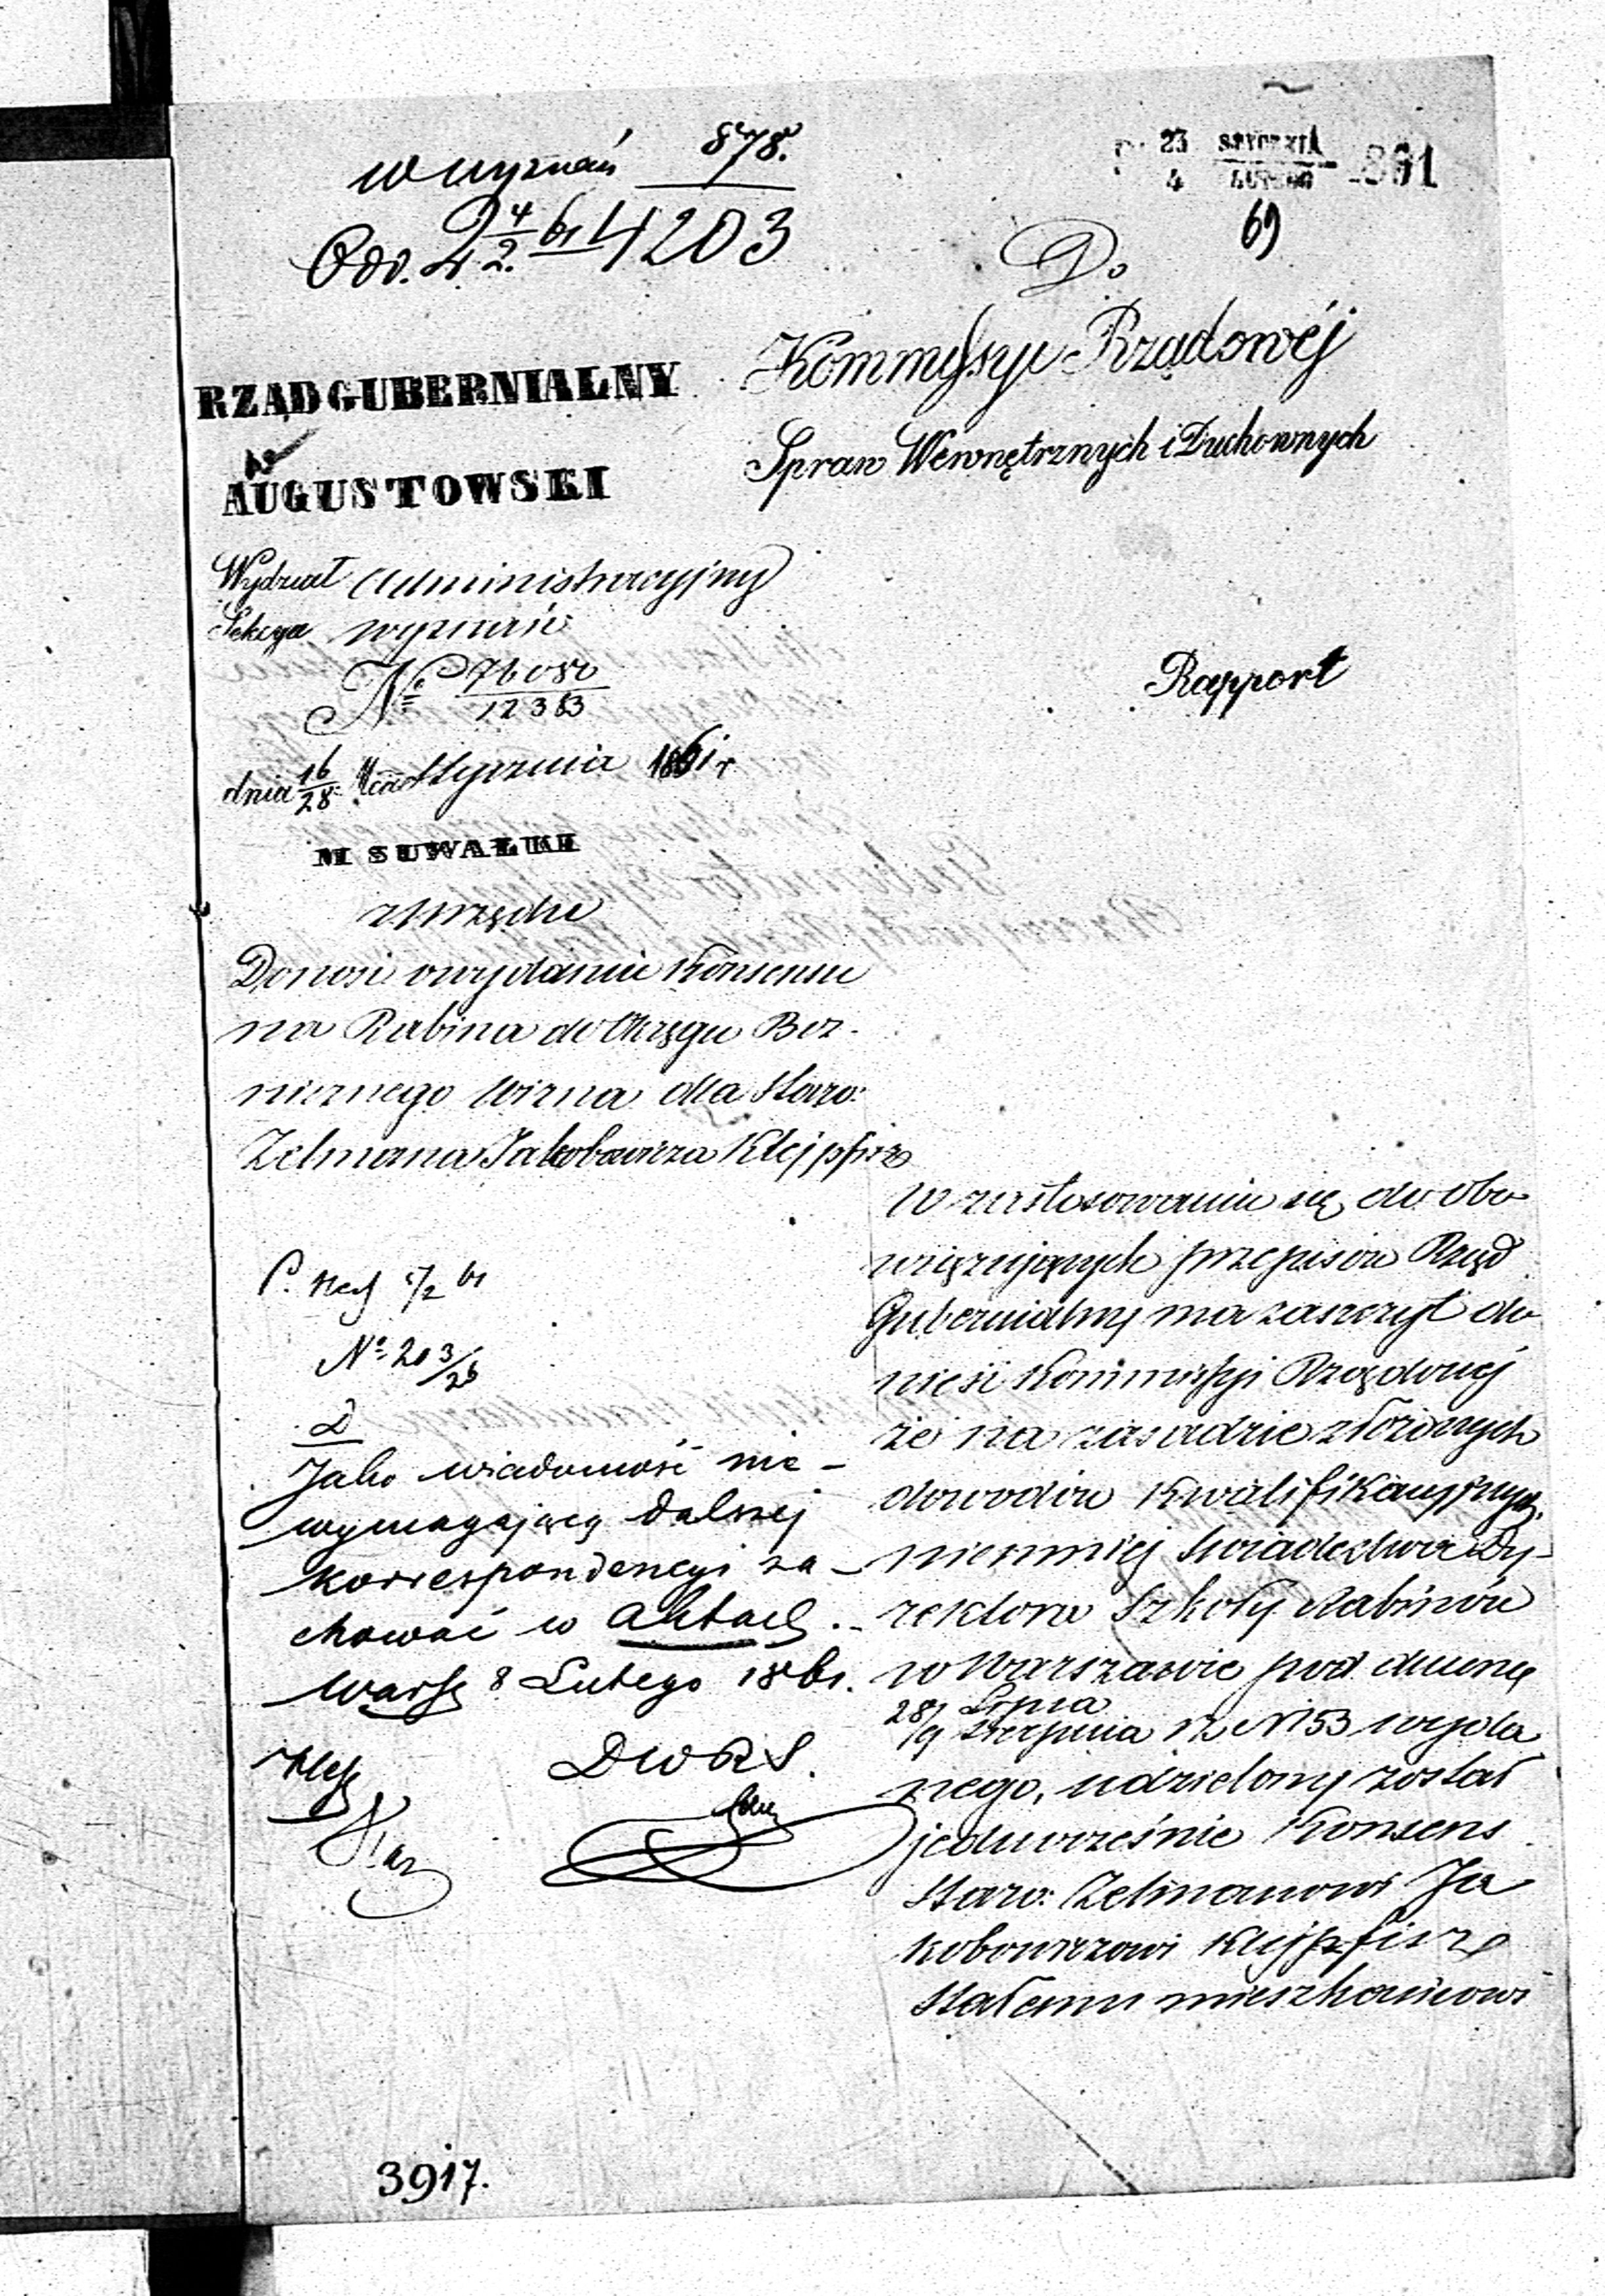 w wyznań 878.
Odd. 4/2 61 4203
23 STYCZNIA
4 LUTEGO 1861
69
Do
Kommyssyi Rządowéj
Spraw Wewnętrznych i Duchownych
RZĄD GUBERNIALNY
AUGUSTOWSKI
Wydział Administracyjny
Sekcya wyznań
№ 76080
12383
Rapport
dnia 16/28 Stycznia 1861 r
M SUWAŁKI
Donosi o wydaniu Konsensu
na Rabina do Okręgu Boż-
niczego Wizna dla Staro:
Zelmana Jakobowicza Klejpfisz
W zastosowaniu się do obo-
wiązujących przepisów Rząd
Gubernialny ma zaszczyt do-
nieść Kommissyi Rządowej
że na zasadzie złożonych
dowodów Kwalifikacyjnych,
niemniej świadectwa Dy-
rektora Szkoły Rabinów
w Warszawie pod dniem
28/ Lipca
/9 Sierpnia N 153 wyda
nego, udzielony został
jednocześnie Konsens
Staro: Zelmanowi Ja
kobowiczowi Klejpfisz
Stałemu mieszkańcowi
5/2 61
№ 203/26
D
Jako wiadomość nie-
wymagającą dalszej
korrespondencyi za-
chować w aktach.
Warsz 8 Lutego 1861.
DWRS.
3917.